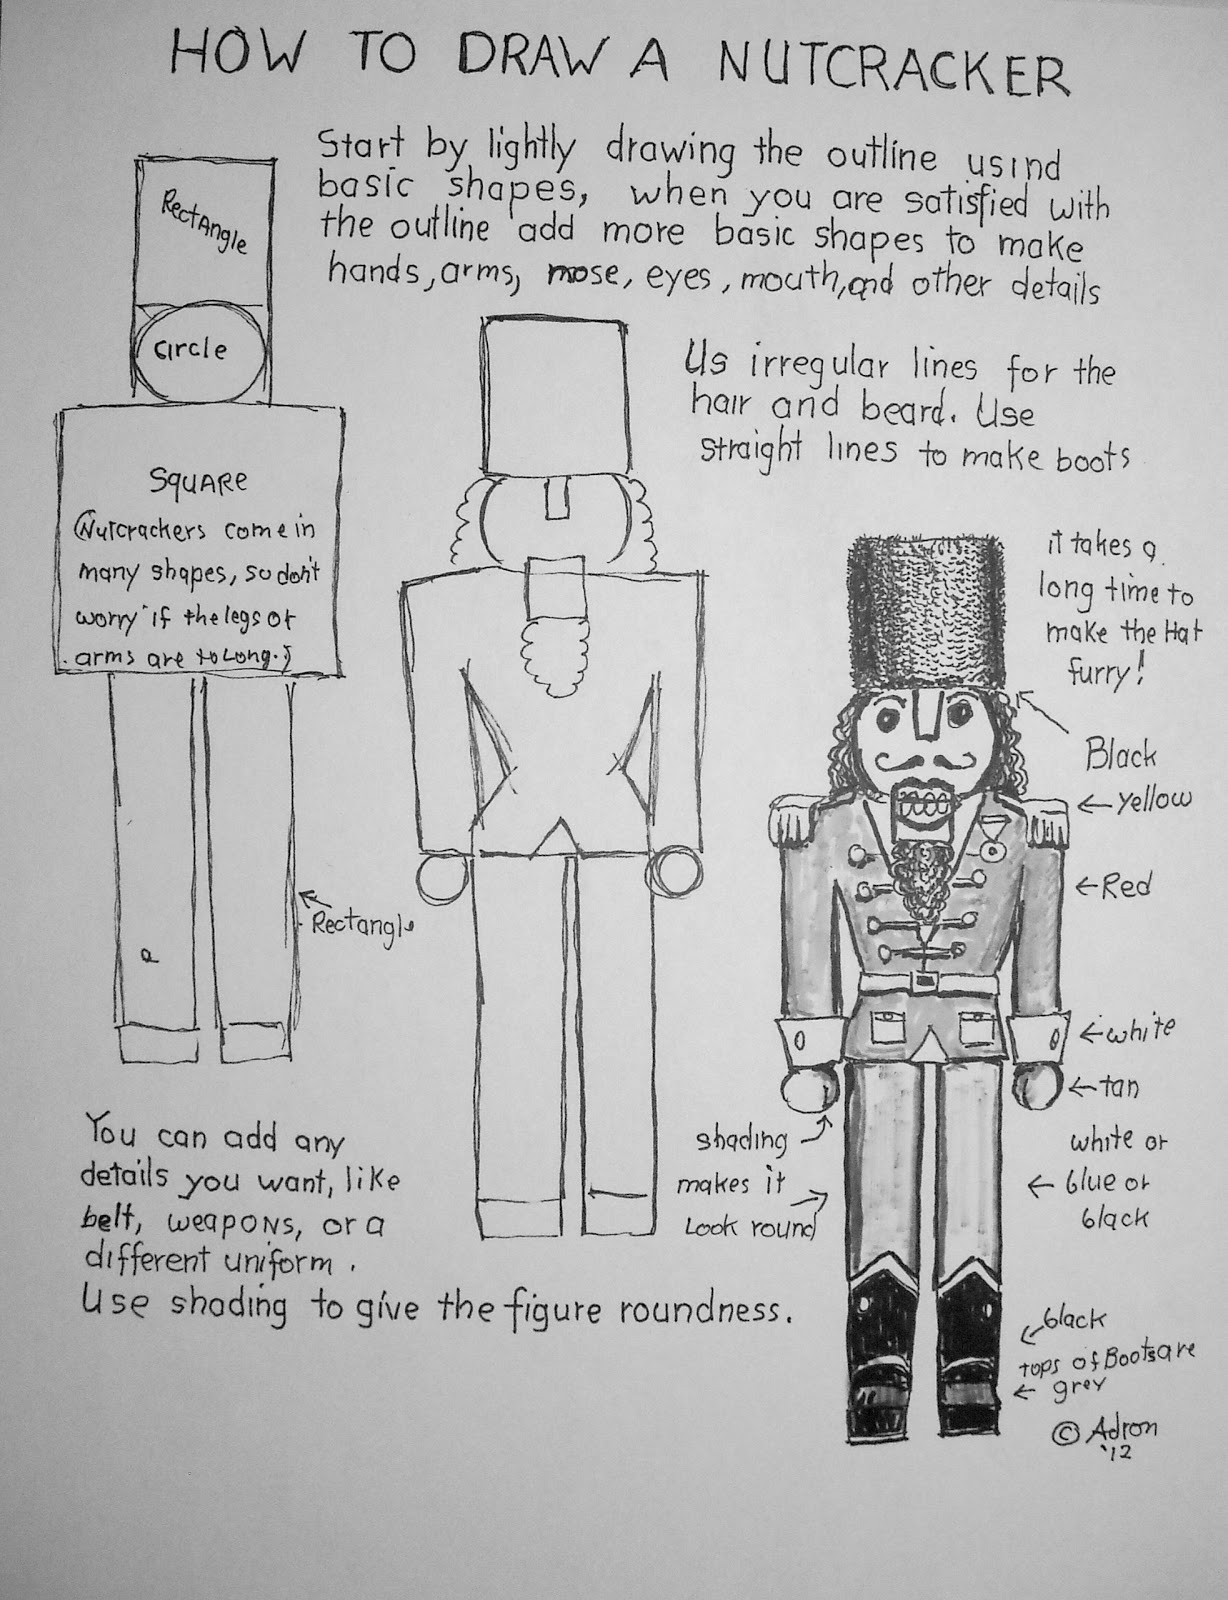 HOW TO DRAW A NUTCRACKER
Start by lightly drawing the outline usind
basic shapes, when you are satisfied with
the outline add more basic shapes to make
hands, arms, nose, eyes, mouth, and other details
Rectangle
Circle
Us irregular lines for the
hair and beard. Use
straight lines to make boots
SQUARE
(Nutcrackers come in
many shapes, so don't
worry if the legs or
arms are to Long.)
it takes a
long time to
make the Hat
furry!
Black
yellow
Red
Rectangle
white
tan
shading
makes it
Look round
white or
blue or
black
You can add any
details you want, like
belt, weapons, or a
different uniform.
Use shading to give the figure roundness.
black
tops of Boots are
grey
© Adron
'12